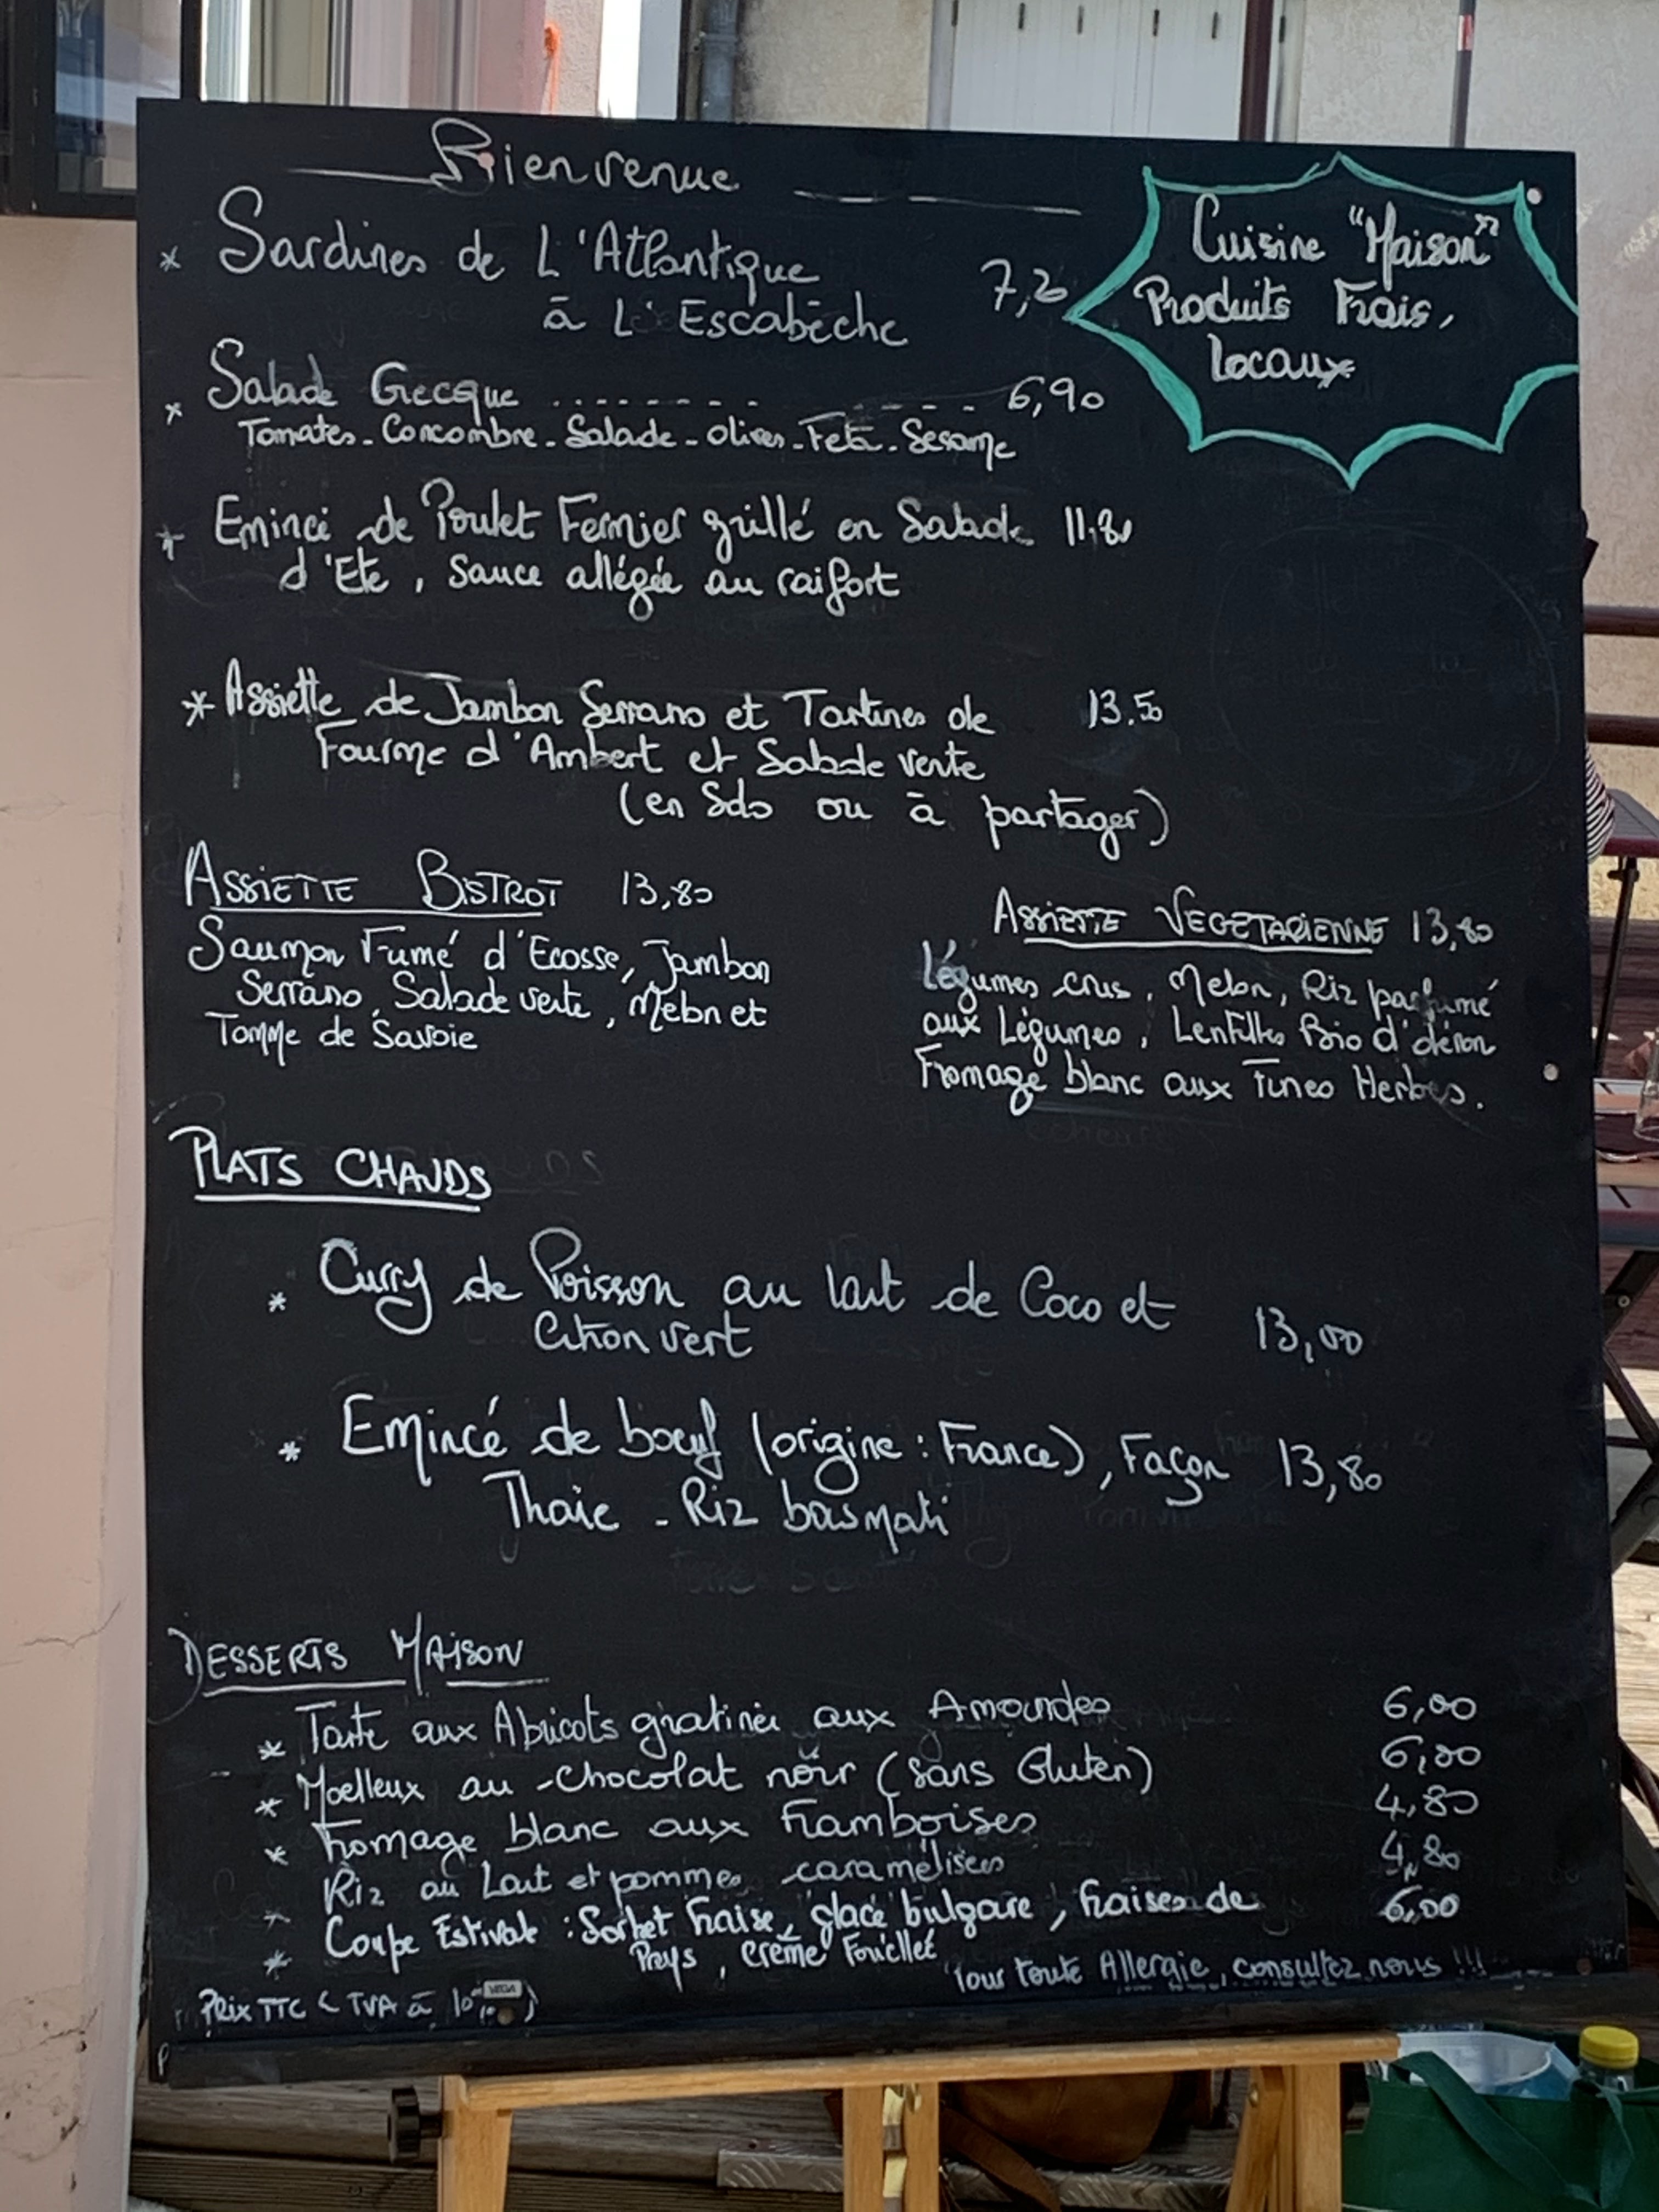 Bienvenue
Cuisine "Maison"
Produits Frais,
Locaux
* Sardines de L'Atlantique
à L'Escabèche 7,20
* Salade Grecque ........ ---- 6,90
Tomates - Concombre - Salade - Olives - Feta - Sesame
* Emincé de Poulet Fermier grillé en Salade 11,80
d'Eté, Sauce allégée au raifort
* Assiette de Jambon Serrano et Tartines de 13.50
Fourme d'Ambert et Salade verte
(en Solo ou à partager)
ASSIETTE BISTROT 13,80
Saumon Fumé d'Ecosse, Jambon
Serrano, Salade verte, Melon et
Tomme de Savoie
ASSIETTE VEGETARIENNE 13,80
Légumes crus, Melon, Riz parfumé
aux Légumes, Lentilles Bio d'
Fromage blanc aux Fines Herbes.
PLATS CHAUDS
* Curry de Poisson au lait de Coco et
Citron vert 13,00
* Emincé de boeuf (origine : France), Façon 13,80
Thaïe - Riz basmati
DESSERTS MAISON
* Tarte aux Abricots gratinée aux Amandes 6,00
* Moelleux au Chocolat noir (Sans Gluten) 6,00
* Fromage blanc aux Framboises 4,80
* Riz au Lait et pommes caramélisées 4,80
* Coupe Estivale : Sorbet fraise, glace bulgare, fraises de 6,00
Pays, Crème Fouettée
Pour toute Allergie, consultez nous !!!
Prix TTC (TVA à 10%)
VEGA